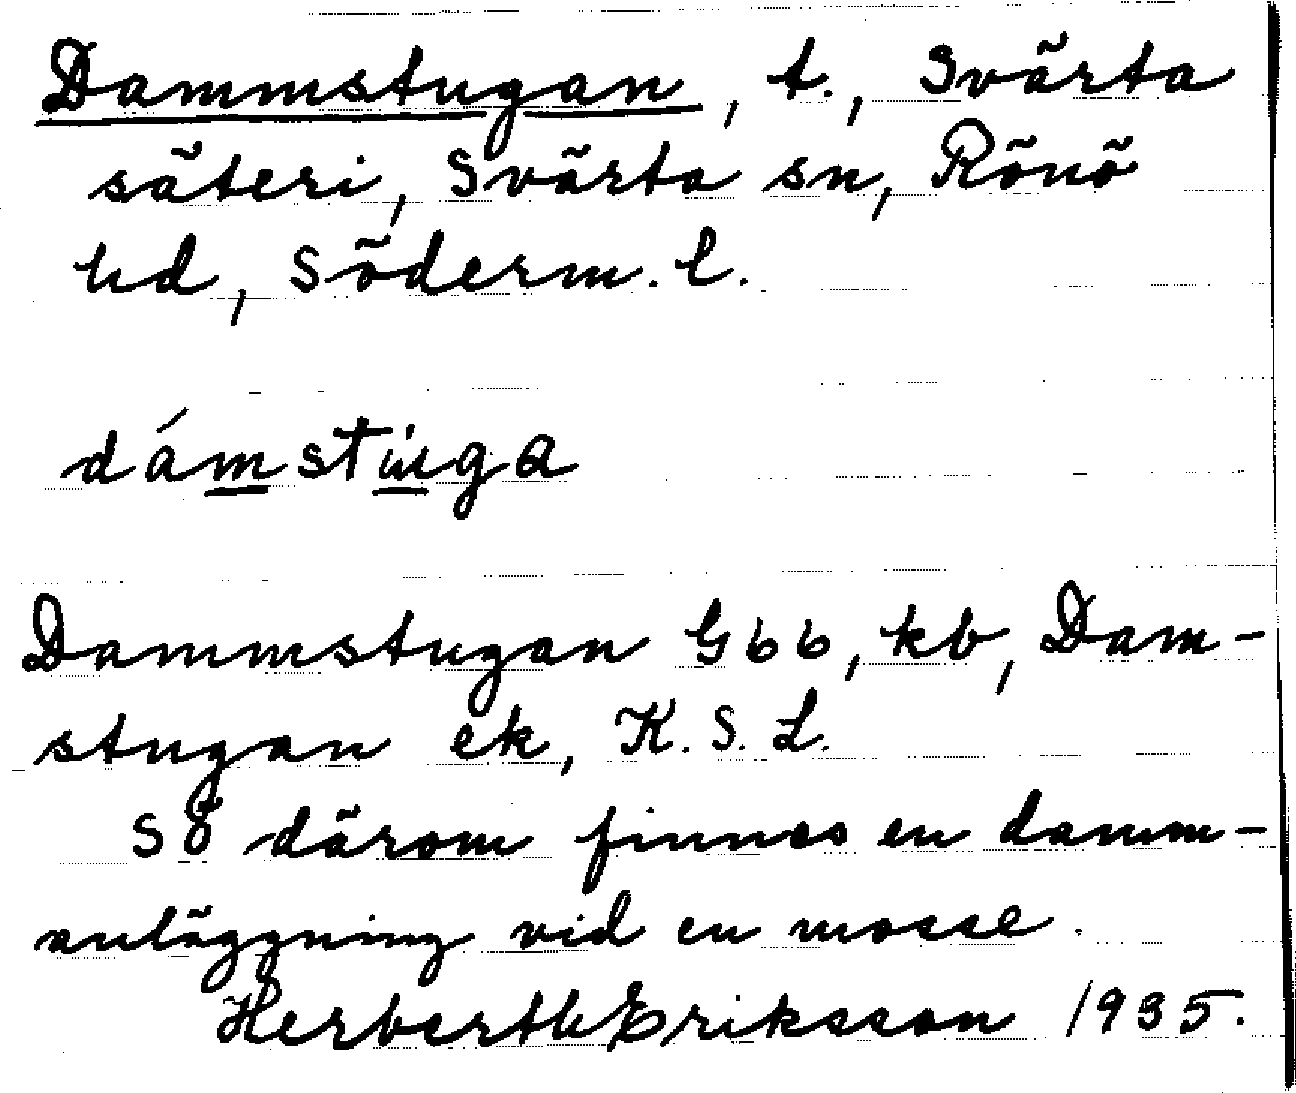 Dammstugan, t., Svärta
säteri, Svärta sn, Rönö
hd, Söderm. l.
dámstu̇ga
Dammstugan G66, kb, Dam-
stugan ek, K. S. L.
SÖ därom finnes en damm-
anläggning vid en mosse.
Herberth Eriksson 1935.